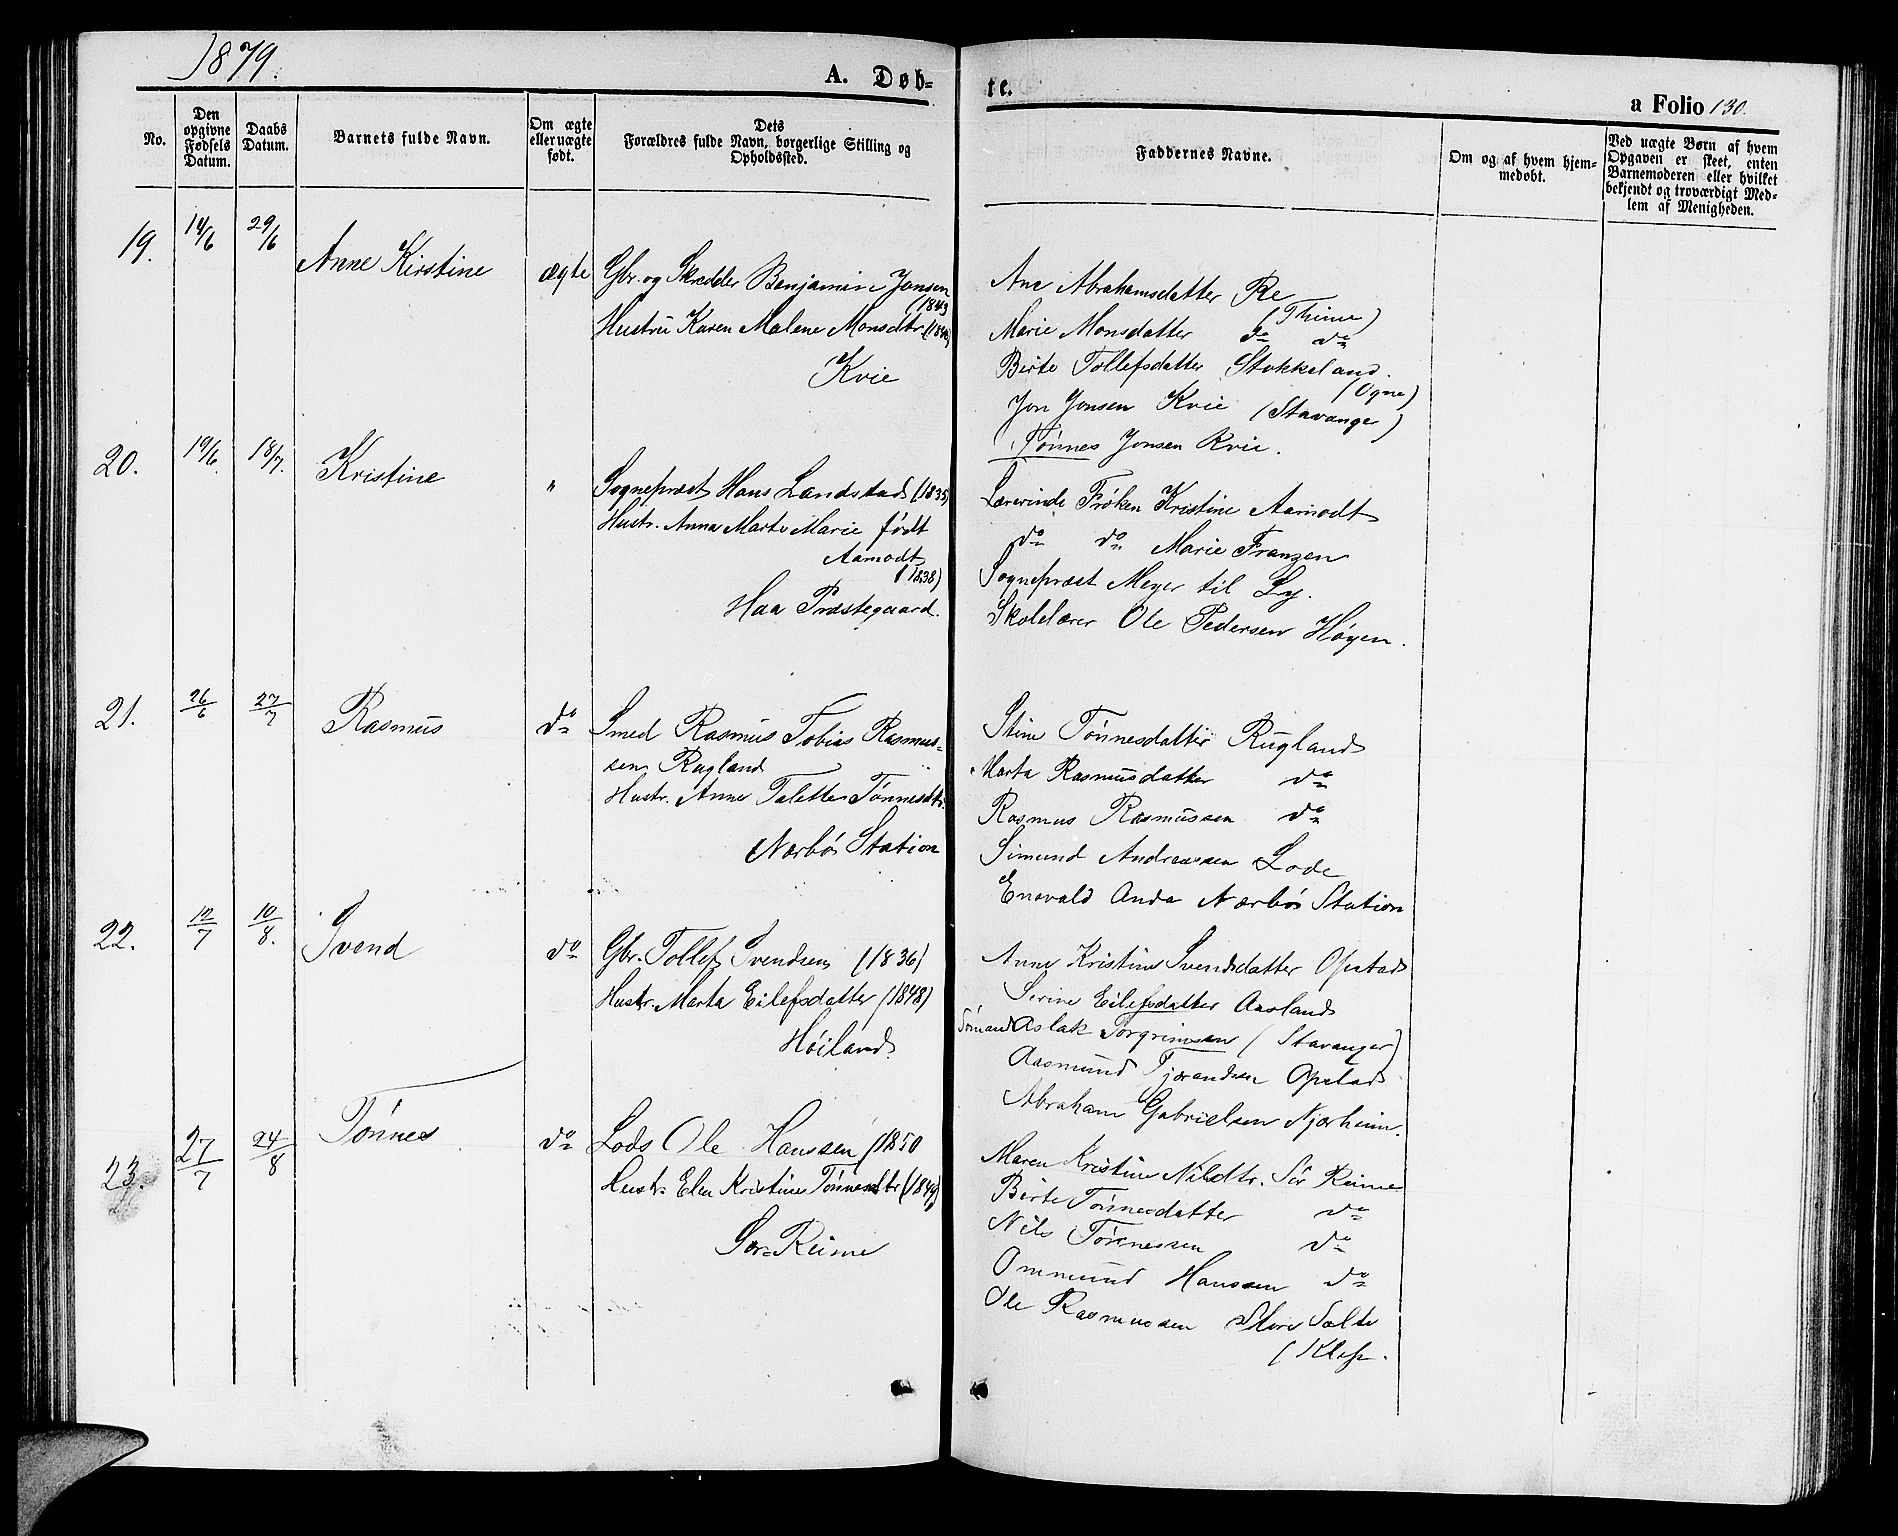 1879.
A. Døb=
te.
a Folio 130.
No.
Den opgivne Fødsels Datum.
Daabs Datum.
Barnets fulde Navn.
Om ægte eller uægte født.
Dets Forældres fulde Navn, borgerlige Stilling og Opholdssted.
Faddernes Navne.
Om og af hvem hjemmedøbt.
Ved uægte Børn af hvem Opgaven er skeet, enten Barnemoderen eller hvilket bekjendt og troværdigt Medlem af Menigheden.
19.
14/6
29/6
Anne Kirstine
ægte
Gbr. og Skrædder Benjamin Jonsen
(1843
Hustru Karen Malene Monsdtr.
Kvie
Ane Abrahamsdatter Re
(Thime)
Marie Monsdatter do do
Birte Tollefsdatter Stokkeland.
(Ogne)
Jon Jonsen Kvie (Stavanger)
Tønnes Jonsen Kvie.
20.
19/6.
18/7.
Kristine
"
Sogneprest Hans Landstad (1835)
Hustr. Anna Marte Marie født
Aamodt
(1838)
Haa Præstegaard.
Lærerinde Frøken Kristine Aamodt
do do Marie Franzen
Sogneprest Meyer til Ly.
Skolelærer Ole Pedersen Høyen.
21.
26/6
27/7
Rasmus
do
Smed Rasmus Tobias Rasmus=
sen Rugland
Hustr. Anne Talette Tønnesdtr.
Nærbø Station
Stine Tønnesdatter Rugland
Marta Rasmusdatter do
Rasmus Rasmussen do
Simund Andreassen Lode
Enevald Anda Nærbø Station
22.
12/7
10/8.
Svend
do
Gbr. Tollef Svendsen (1836)
Hustr. Marta Eilefsdatter (1848)
Høiland
Anne Kristine Svendsdatter Opstad
Serine Eilefsdatter Aasland
Sømand Aslak Torgrimsen (Stavanger)
Aasmund Tjerandsen Opstad
Abraham Gabrielsen Njærheim.
23.
27/7
24/8
Tønnes
do
Lods Ole Hanssen (1850
Hustr. Elen Kristine Tønnesdtr (1849)
Sør=Reime
Maren Kristine Nilsdtr. Sør Reime
Birte Tønnesdatter do
Nils Tønnessen do
Ommund Hanssen do
Ole Rasmussen Store Salte
(Klep.